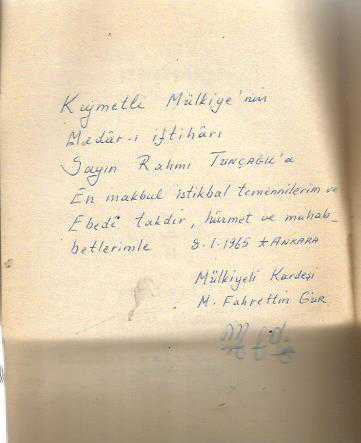 Kıymetli Mülkiye'nin
Madâr-ı iftihârı
Sayın Rahmi TUNÇAĞIL'a
En makbul istikbal temennilerim ve
Ebedî takdir, hürmet ve muhab_
betlerimle 8-1-1965 ★ ANKARA
Mülkiyeli Kardeşi
M. Fahrettin GÜR